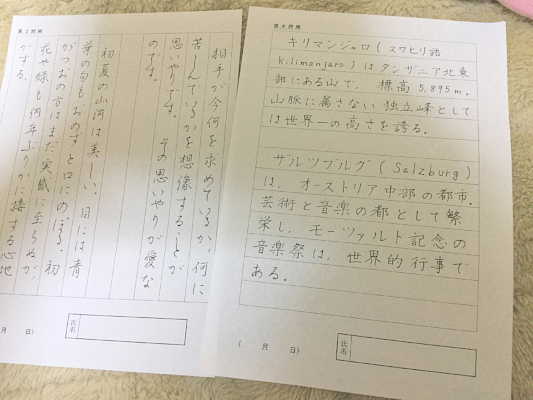 第2課題
相手が今何を求めているか、何に
苦しんでいるかを想像することが
思いやりです。その思いやりが愛な
のです。
初夏の山河は美しい。目には青
葉の句もおのずと口にのぼる。初
がつおの方はまだ実感に至らぬが、
花や緑も何年ぶりかに接する心地
がする。
月 日)
氏名
第4課題
キリマンジャロ(スワヒリ語
kilimanjaro)はタンザニア北東
部にある山で、標高5,895m。
山脈に属さない独立峰として
は世界一の高さを誇る。
ザルツブルグ(Salzburg)
は、オーストリア中部の都市。
芸術と音楽の都として繁
栄し、モーツァルト記念の
音楽祭は、世界的行事で
ある。
( 月 日)
氏名